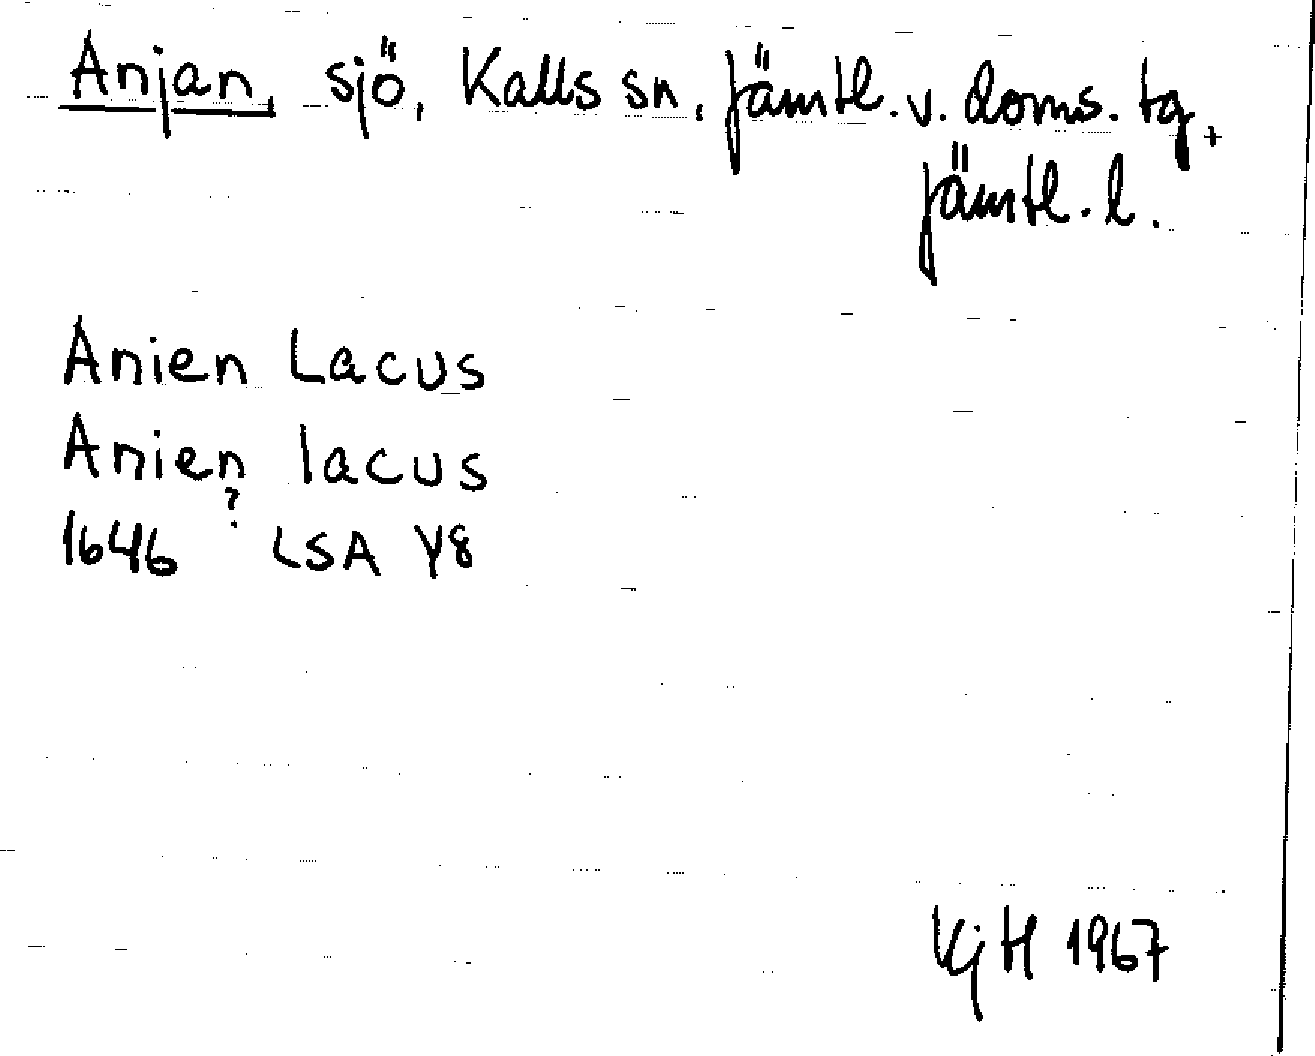 Anjan, sjö, Kalls sn, Jämtl. v. doms. tg,
Jämtl. l.
Anien Lacus
Anien lacus
?
1646 LSA Y8
KjH 1967